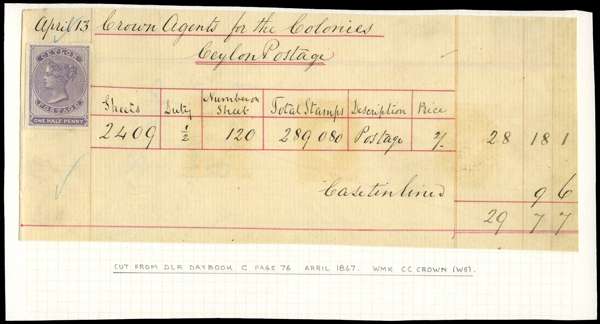 April 13 Crown Agents for the Colonies
Ceylon Postage
CEYLON
POSTAGE
ONE HALF PENNY
Sheets Duty Number on Sheet Total Stamps Description Price
2409 ½ 120 289080 Postage 2/- 28 18 1
Case tin lined 9 6
29 7 7
CUT FROM DLR DAYBOOK C PAGE 76 APRIL 1867. WMK CC CROWN (W5).